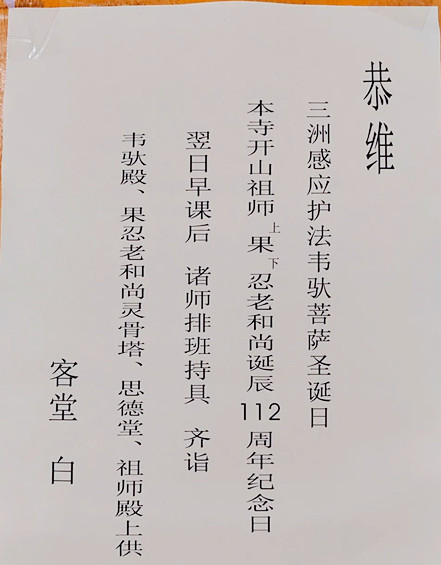 恭维
三洲感应护法韦驮菩萨圣诞日
本寺开山祖师上果下忍老和尚诞辰112周年纪念日
翌日早课后 诸师排班持具、齐诣
韦驮殿、果忍老和尚灵骨塔、思德堂、祖师殿上供
客堂 白